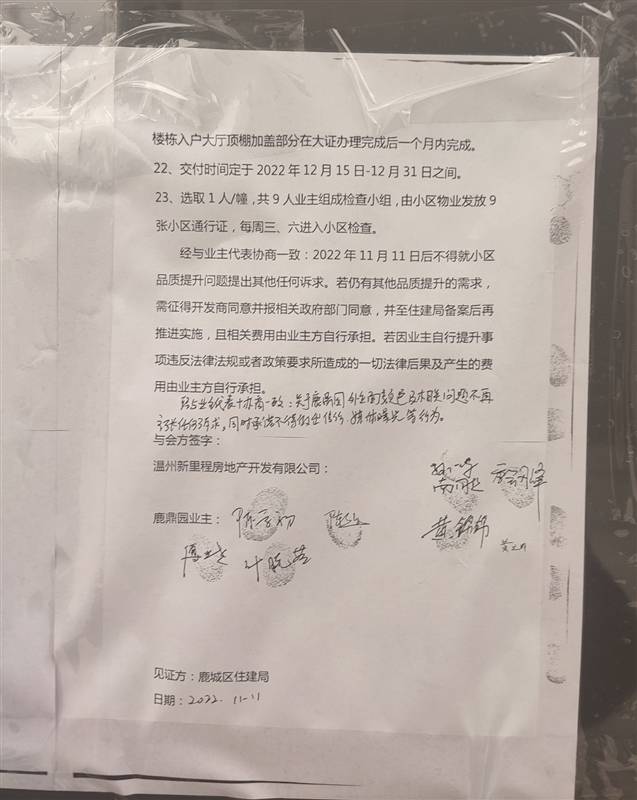 楼栋入户大厅顶棚加盖部分在大证办理完成后一个月内完成。
22、交付时间定于 2022 年 12 月 15 日-12 月 31 日之间。
23、选取 1 人/幢，共 9 人业主组成检查小组，由小区物业发放 9
张小区通行证，每周三、六进入小区检查。
经与业主代表协商一致：2022 年 11 月 11 日后不得就小区
品质提升问题提出其他任何诉求。若仍有其他品质提升的需求，
需征得开发商同意并报相关政府部门同意，并至住建局备案后再
推进实施，且相关费用由业主方自行承担。若因业主自行提升事
项违反法律法规或者政策要求所造成的一切法律后果及产生的费
用由业主方自行承担。
经与业主代表协商一致：关于鹿鼎园外立面颜色及相关问题不再
主张任何诉求，同时承诺不得做出信访、媒体曝光等行为。
与会方签字：
温州新里程房地产开发有限公司：
鹿鼎园业主：
黄锦锦
叶晓
见证方：鹿城区住建局
日期：2022. 11-11